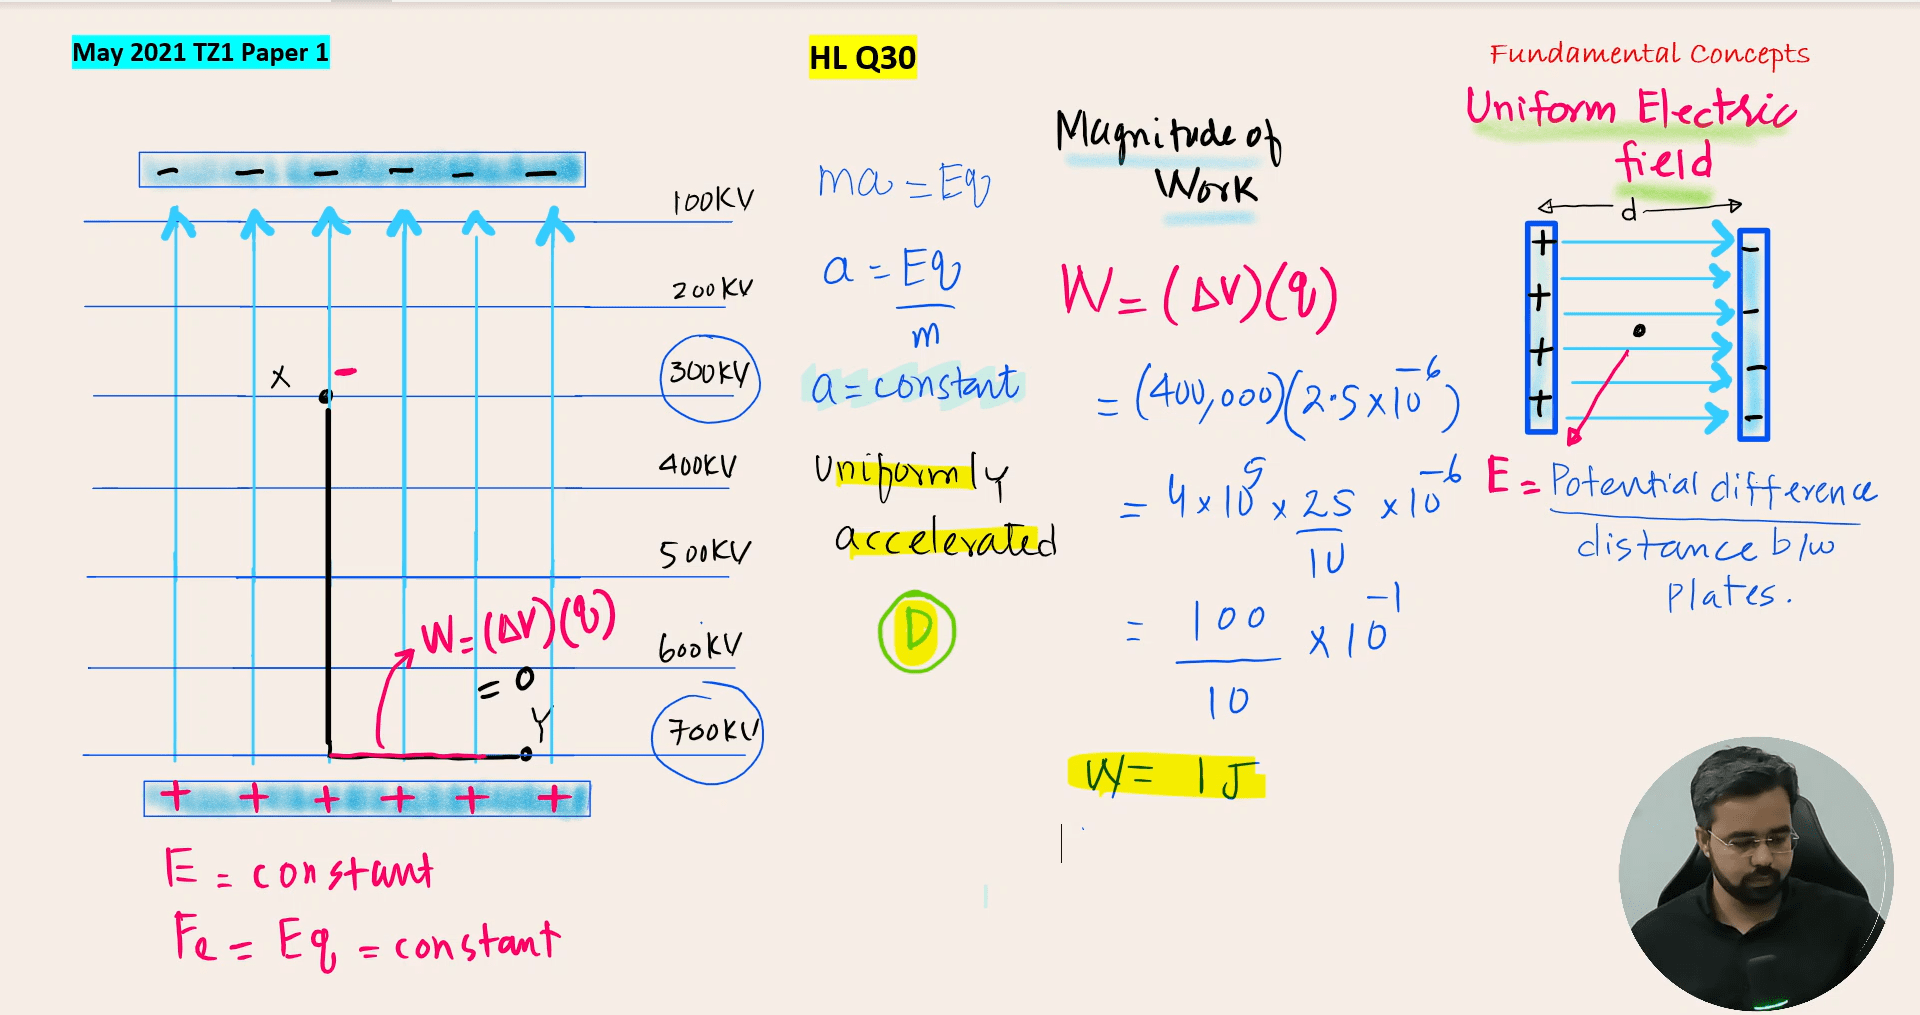 May 2021 TZ1 Paper 1
HL Q30
Fundamental Concepts
Uniform Electric
field
d
+ + + +
- - - -
E = Potential difference
distance b/w
plates.
- - - - - -
100KV
200KV
300KV
400KV
500KV
600KV
700KV
X -
W = (ΔV)(q)
= 0
Y
+ + + + + +
E = constant
Fe = Eq = constant
ma = Eq
a = Eq
m
a = constant
Uniformly
accelerated
D
Magnitude of
Work
W = (ΔV)(q)
= (400,000)(2.5 x 10⁻⁶)
= 4 x 10⁵ x 25 x 10⁻⁶
10
= 100 x 10⁻¹
10
W = 1 J